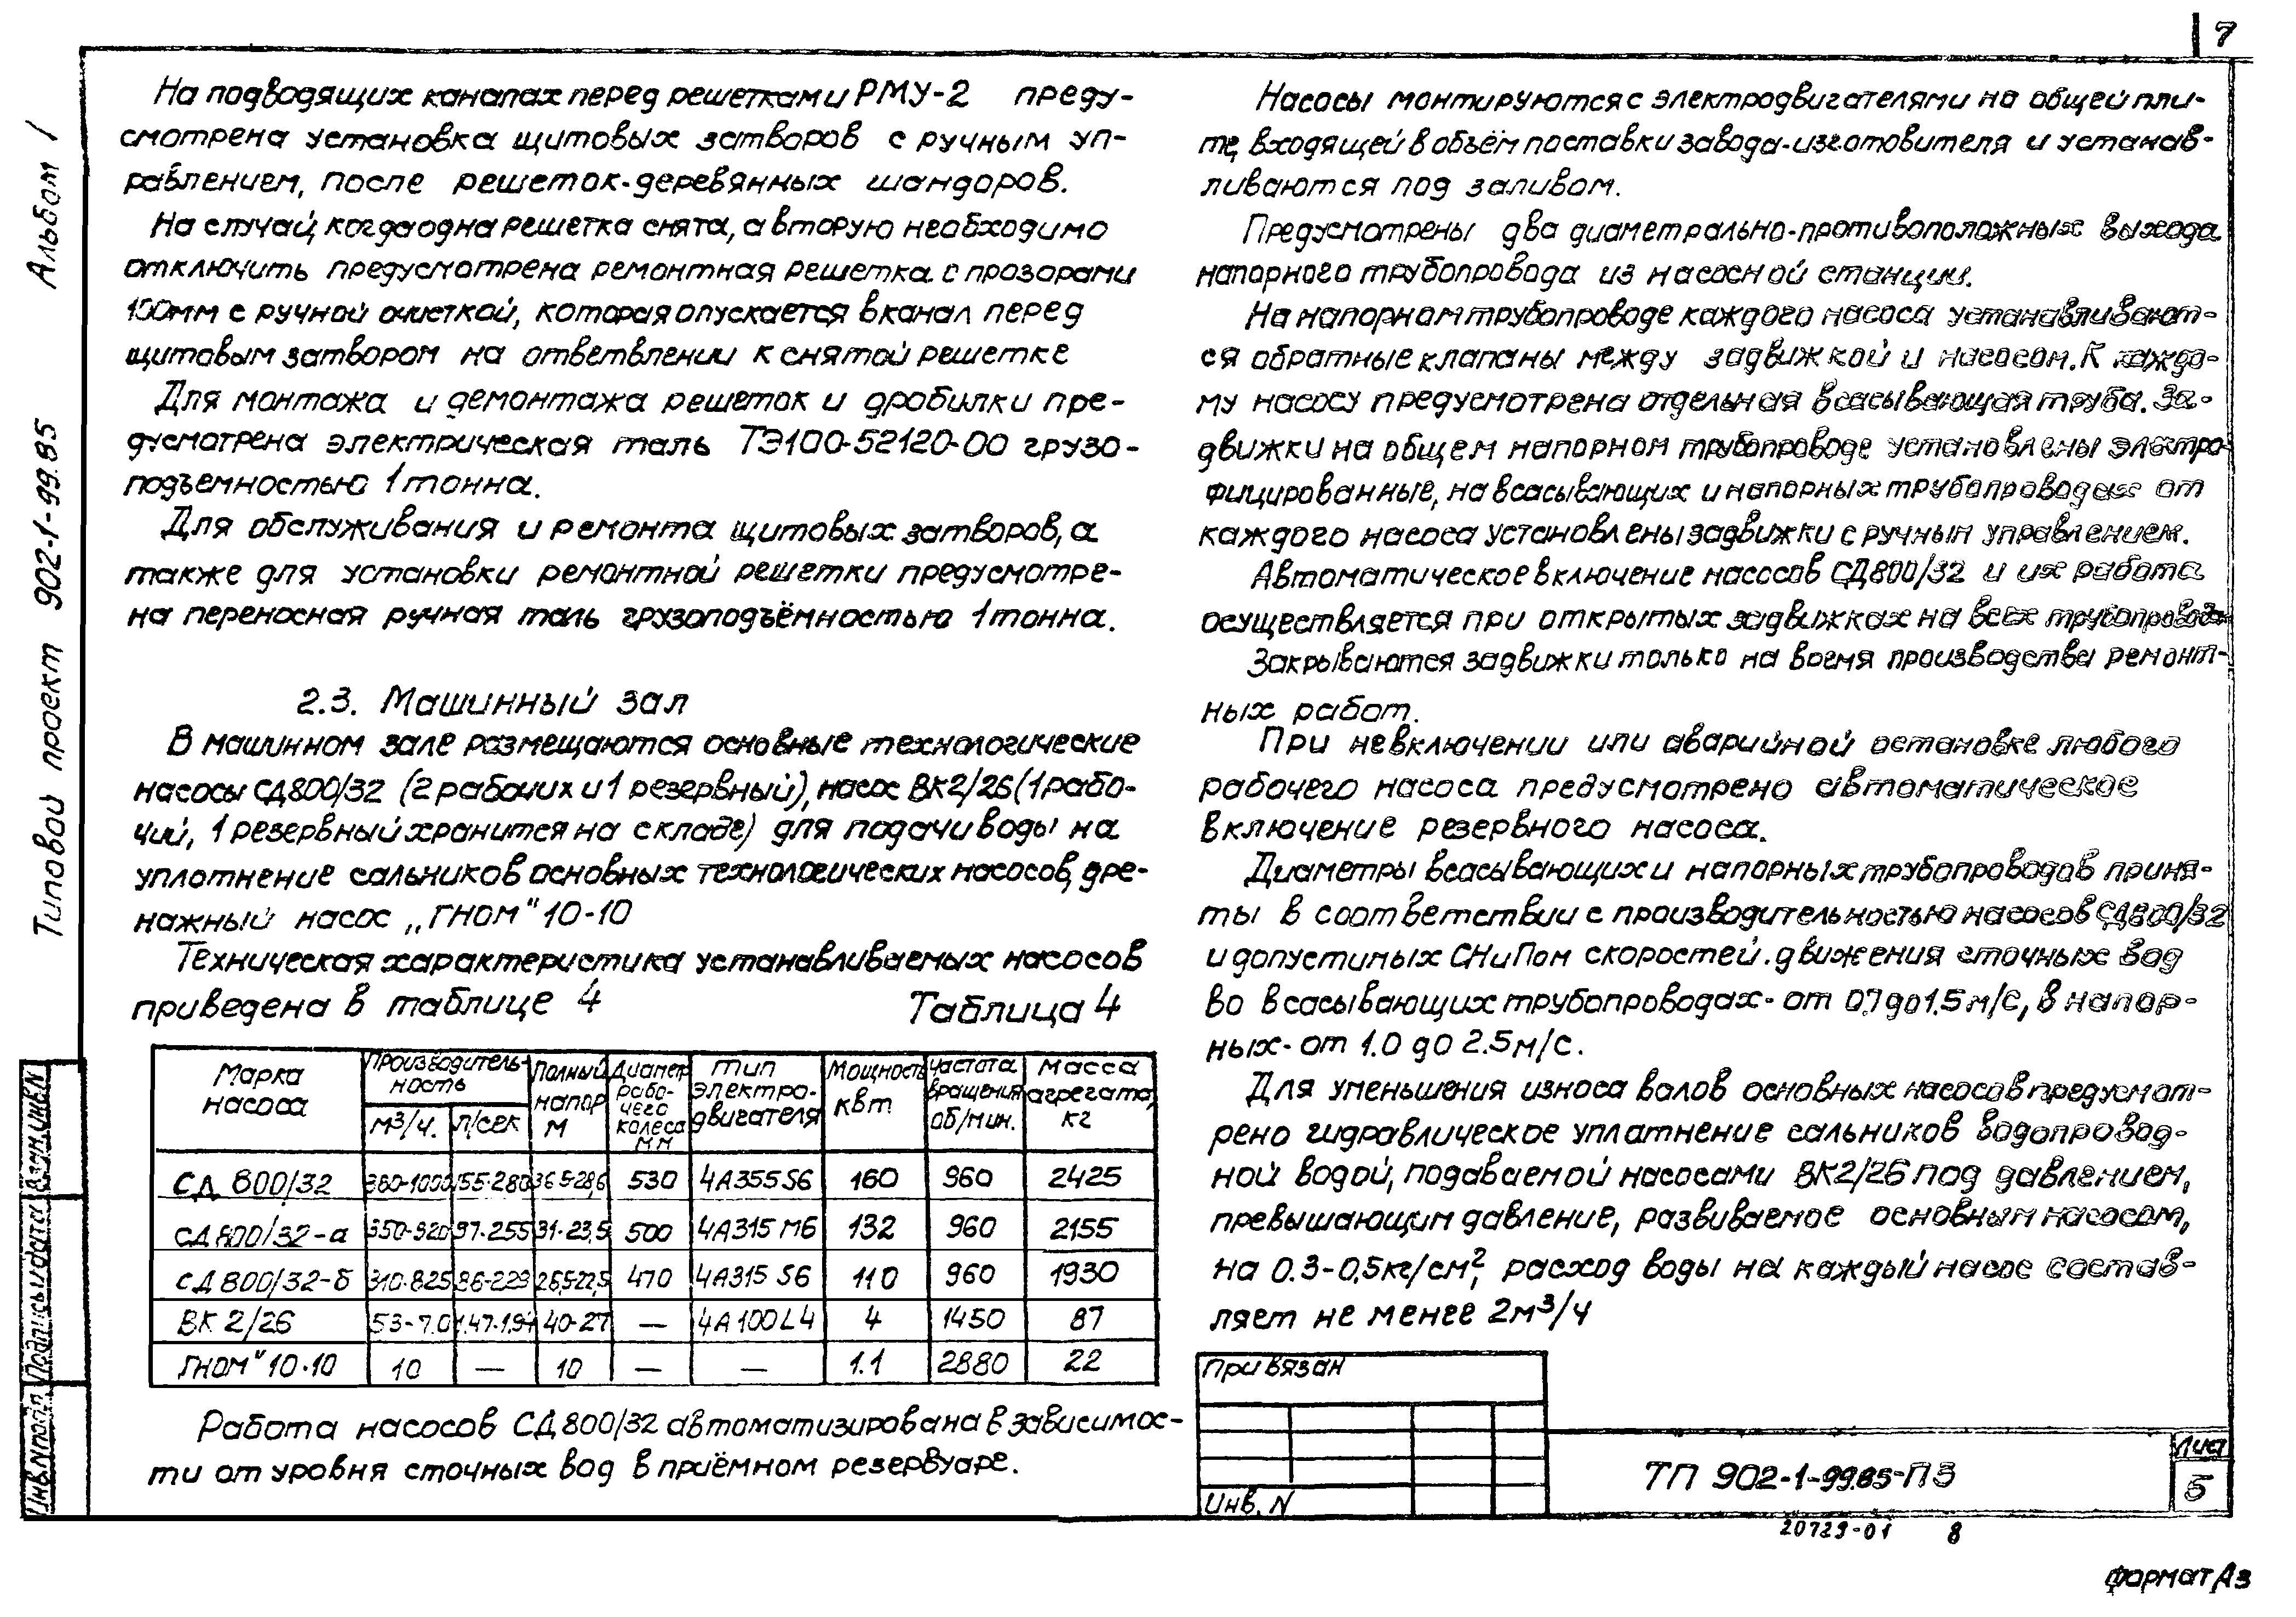 7
Альбом 1
Типовой проект 902-1-99.85
На подводящих каналах перед решетками РМУ-2 преду-
смотрена установка щитовых затворов с ручным уп-
равлением, после решеток-деревянных шандоров.
На случай, когда одна решетка снята, а вторую необходимо
отключить предусмотрена ремонтная решетка с прозорами
100мм с ручной очисткой, которая опускается в канал перед
щитовым затвором на ответвлении к снятой решетке
Для монтажа и демонтажа решеток и дробилки пре-
дусмотрена электрическая таль ТЭ100-52120-00 грузо-
подъемностью 1 тонна.
Для обслуживания и ремонта щитовых затворов, а
также для установки ремонтной решетки предусмотре-
на переносная ручная таль грузоподъёмностью 1 тонна.
2.3. Машинный зал
В машинном зале размещаются основные технологические
насосы СД800/32 (2 рабочих и 1 резервный), насос ВК2/26 (1 рабо-
чий, 1 резервный хранится на складе) для подачи воды на
уплотнение сальников основных технологических насосов, дре-
нажный насос „ГНОМ" 10-10
Техническая характеристика устанавливаемых насосов
приведена в таблице 4
Таблица 4
Марка насоса | Производитель-ность м³/ч. | л/сек | Полный напор м | Диаметр рабо-чего колеса мм | Тип электро-двигателя | Мощность квт | Частота вращения об/мин. | Масса агрегата, кг
СД 800/32 | 380-1000 | 155-280 | 36.5-28,6 | 530 | 4А355S6 | 160 | 960 | 2425
СД 800/32-а | 350-920 | 97-255 | 31-23,5 | 500 | 4А315 М6 | 132 | 960 | 2155
СД 800/32-б | 310-825 | 86-229 | 26,5-22,5 | 470 | 4А315 S6 | 110 | 960 | 1930
ВК 2/26 | 53-7.0 | 1.47-1.94 | 40-27 | — | 4А100L4 | 4 | 1450 | 87
ГНОМ" 10-10 | 10 | — | 10 | — | — | 1.1 | 2880 | 22
Работа насосов СД 800/32 автоматизирована в зависимос-
ти от уровня сточных вод в приёмном резервуаре.
Насосы монтируются с электродвигателями на общей пли-
те, входящей в объём поставки завода-изготовителя и устанав-
ливаются под заливом.
Предусмотрены два диаметрально-противоположных выхода
напорного трубопровода из насосной станции.
На напорном трубопроводе каждого насоса устанавливают-
ся обратные клапаны между задвижкой и насосом. К каждо-
му насосу предусмотрена отдельная всасывающая труба. За-
движки на общем напорном трубопроводе установлены электро-
фицированные, на всасывающих и напорных трубопроводах от
каждого насоса установлены задвижки с ручным управлением.
Автоматическое включение насосов СД800/32 и их работа
осуществляется при открытых задвижках на всех трубопроводах
Закрываются задвижки только на время производства ремонт-
ных работ.
При невключении или аварийной остановке любого
рабочего насоса предусмотрено автоматическое
включение резервного насоса.
Диаметры всасывающих и напорных трубопроводов приня-
ты в соответствии с производительностью насосов СД800/32
и допустимых СНиПом скоростей. движения сточных вод
во всасывающих трубопроводах- от 0.7 до 1.5 м/с, в напор-
ных- от 1.0 до 2.5 м/с.
Для уменьшения износа валов основных насосов предусмот-
рено гидравлическое уплатнение сальников водопровод-
ной водой, подаваемой насосами ВК2/26 под давлением,
превышающим давление, развиваемое основным насосом,
на 0.3-0,5кг/см², расход воды на каждый насос состав-
ляет не менее 2м³/ч
Привязан
Инв. N
ТП 902-1-99.85-ПЗ
Лист
5
20729-01 8
Формат А3
Инв.Nподл. Подпись и дата Взам.инв.N